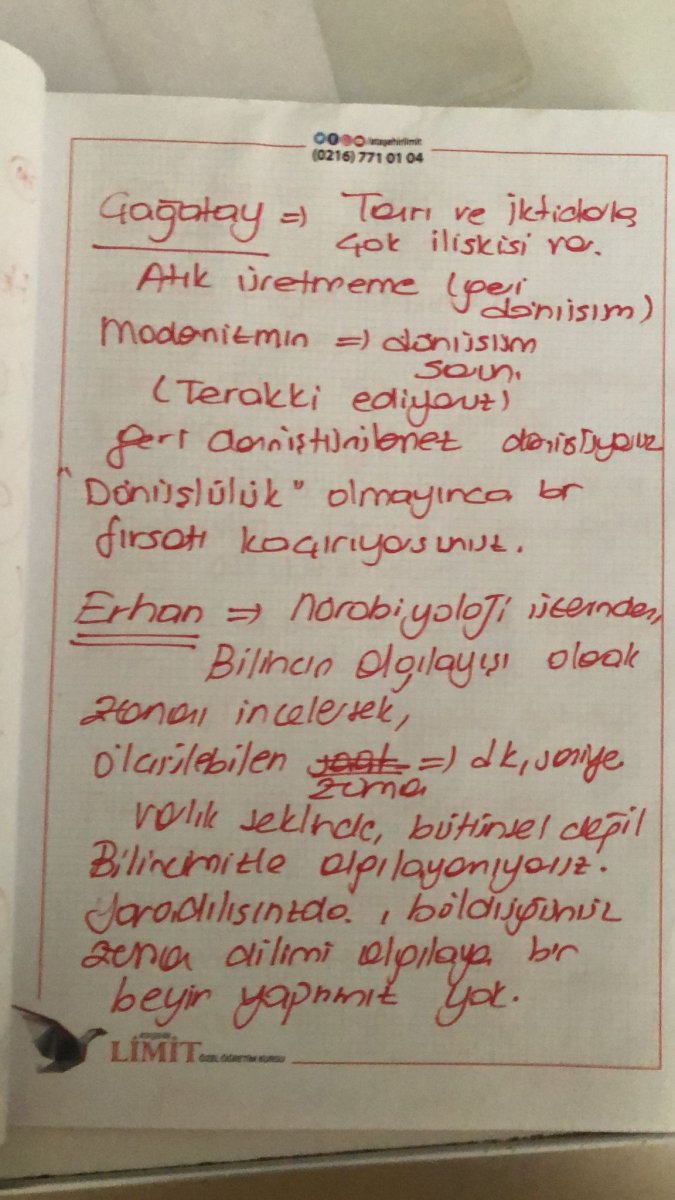 /atasehirlimit
(0216) 771 01 04
Çağatay => Tanrı ve iktidarla
çok ilişkisi va.
Atık üretmeme (geri
dönüşüm)
Modenitmin => dönüşüm
soun.
(Terakki ediyouz)
geri dönüştürülmet dönüşüyouz
"Dönüşlülük" olmayınca bir
fırsatı kaçırıyosunuz.
Erhan => Nörobiyoloji üzeinden,
Bilincin algılayışı olaak
zamanı incelersek,
ölçülebilen saat => dk, saniye
zama
valık şeklinde, bütünsel değil
Bilincimizle algılayamıyouz.
Yaradılışınızda, böldüğünüz
zama dilimi algılaya bir
beyin yapımız yok.
ATAŞEHİR
LİMİT ÖZEL ÖĞRETİM KURSU